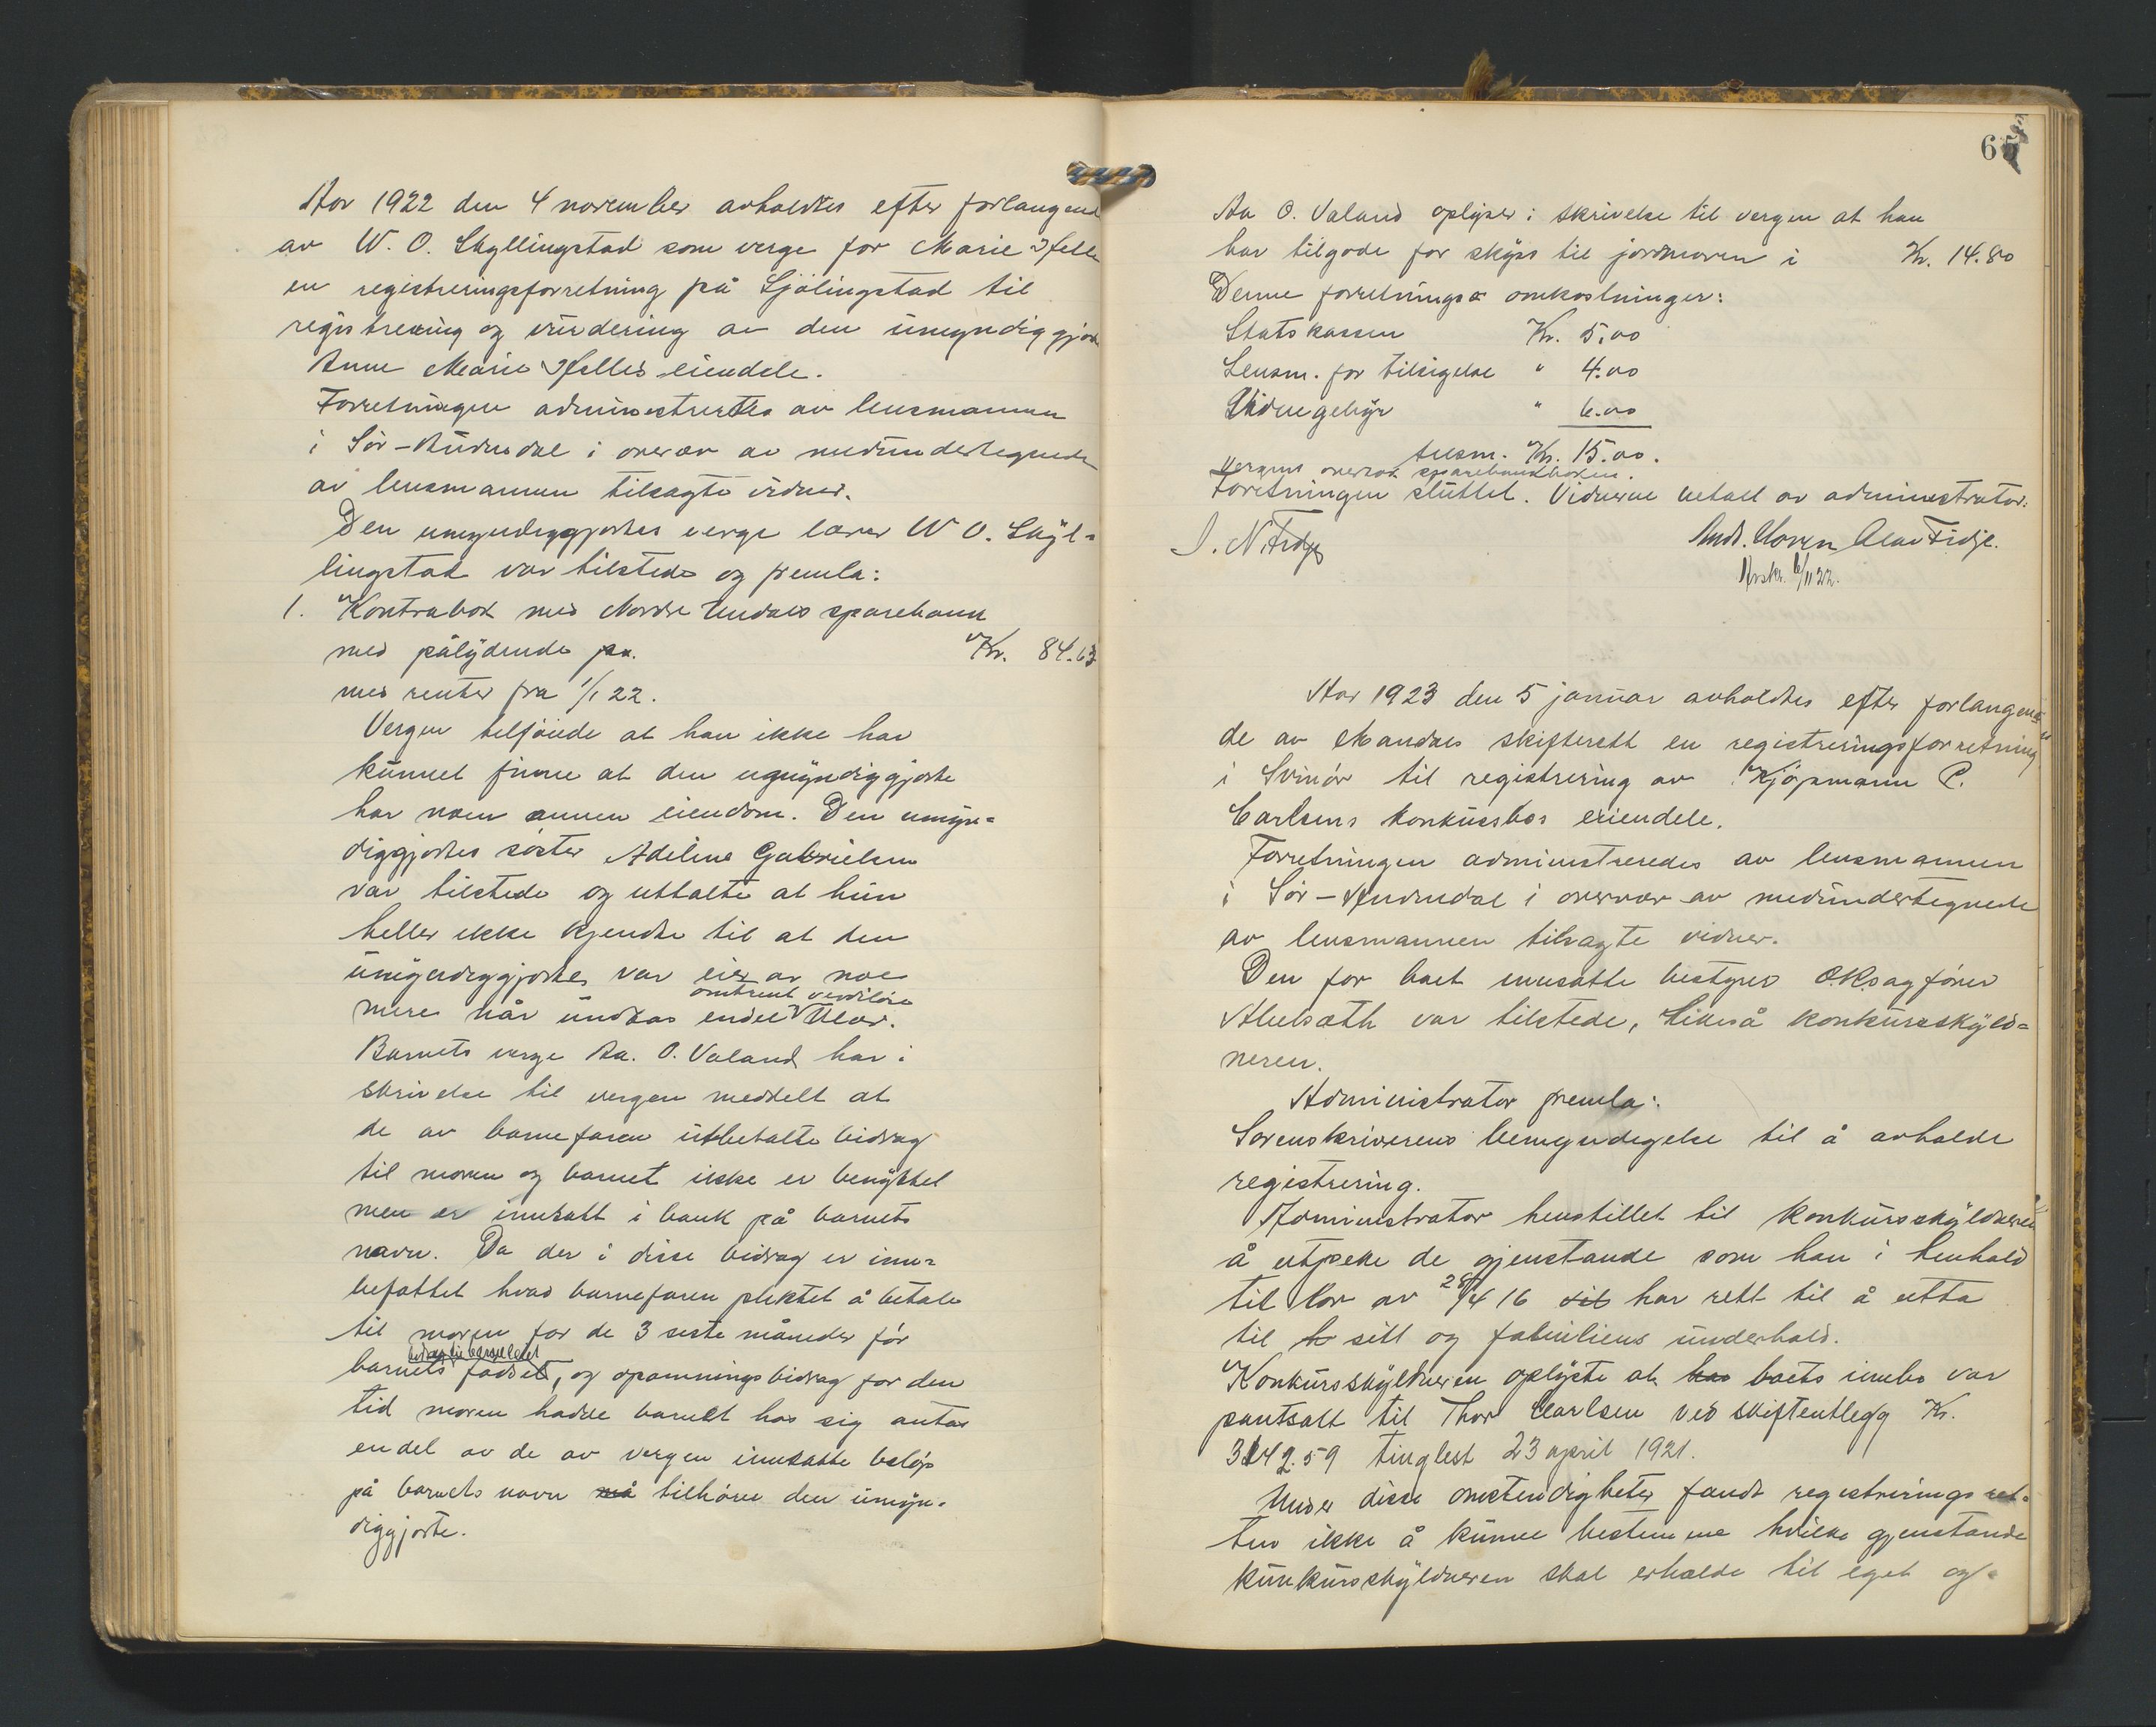 Aar 1922 den 4 november avholdtes efter forlangend
av W. O. Skyllingstad som verge for Marie Helle
en registreringsforretning på Sjölingstad til
registrering og vurdering av den umyndiggjorte
Anne Marie Helles eiendele.
Forretningen administrertes av lensmannen
i Sör-Audnedal i overvær av medundertegnede
av lensmannen tilsagte vidner.
Den umyndiggjortes verge lærer W O. Skyl-
lingstad var tilstede og fremla:
1. Kontrabok med Nordre Undals sparebank
med pålydende Kr. 84.63
med renter fra 1/1 22.
Vergen tilföiede at han ikke har
kunnet finne at den umyndiggjorte
har noen annen eiendom. Den umyn=
diggjortes söster Adeline Gabrielsen
var tilstede og uttalte at hun
heller ikke kjendte til at den
umyndiggjorte var eier av noe
omtrent verdilöse
mere når undtas endel klær.
Barnets verge Aa. O. Valand har i
skrivelse til vergen meddelt at
de av barnefaren utbetalte bidrag
til moren og barnet ikke er benyttet
men er innsatt i bank på barnets
navn. Da der i disse bidrag er inn=
befattet hvad barnefaren pliktet å betale
til moren for de 3 siste måneder för
barnets födsel, og opamningsbidrag for den
tid moren hadde barnet hos sig antas
endel av de av vergen innsatte belöp
på barnets navn må tilhöre den umyn-
diggjorte.
65
Aa O. Valand oplyser i skrivelse til vergen at han
har tilgode for skyss til jordmoren i Kr. 14.80
Denne forretnings omkostninger:
Statskassen Kr. 5.00
Lensm. for tilsigelse " 4.00
Vidnegebyr " 6.00
tilsm. Kr. 15.00.
Vergens overtok sparebankboken.
Forretningen sluttet. Vidnerne betalt av administrator.
J. N. Fidje
Andr. Hoven Olav Fidje.
Avskr. 6/11 22.
Aar 1923 den 5 januar avholdtes efter forlangen=
de av Mandals skifterett en registreringsforretning
i Svinör til registrering av Kjöpmann C.
Carlsens konkursbos eiendele.
Forretningen administreredes av lensmannen
i Sör-Audnedal i overvær av medundertegnede
av lensmannen tilsagte vidner.
Den for boet innsatte bestyrer O.R.sagförer
Abelsæth var tilstede, likeså konkursskyld=
neren.
Administrator fremla:
Sorenskriverens bemyndigelse til å avholde
registrering.
Administrator henstillet til konkursskyldneren
å utpeke de gjenstande som han i henhold
til lov av 28/4 16 til har rett til å utta
til h sitt og familiens underhold.
Konkursskyldneren oplyste at has boets innbo var
pantsatt til Thor Carlsen ved skiftentlegg Kr.
3142.59 tinglest 23 april 1921.
Under disse omstendigheter fandt registreringsret-
ten ikke å kunne bestemme hvilke gjenstande
kunkursskyldneren skal erholde til eget og